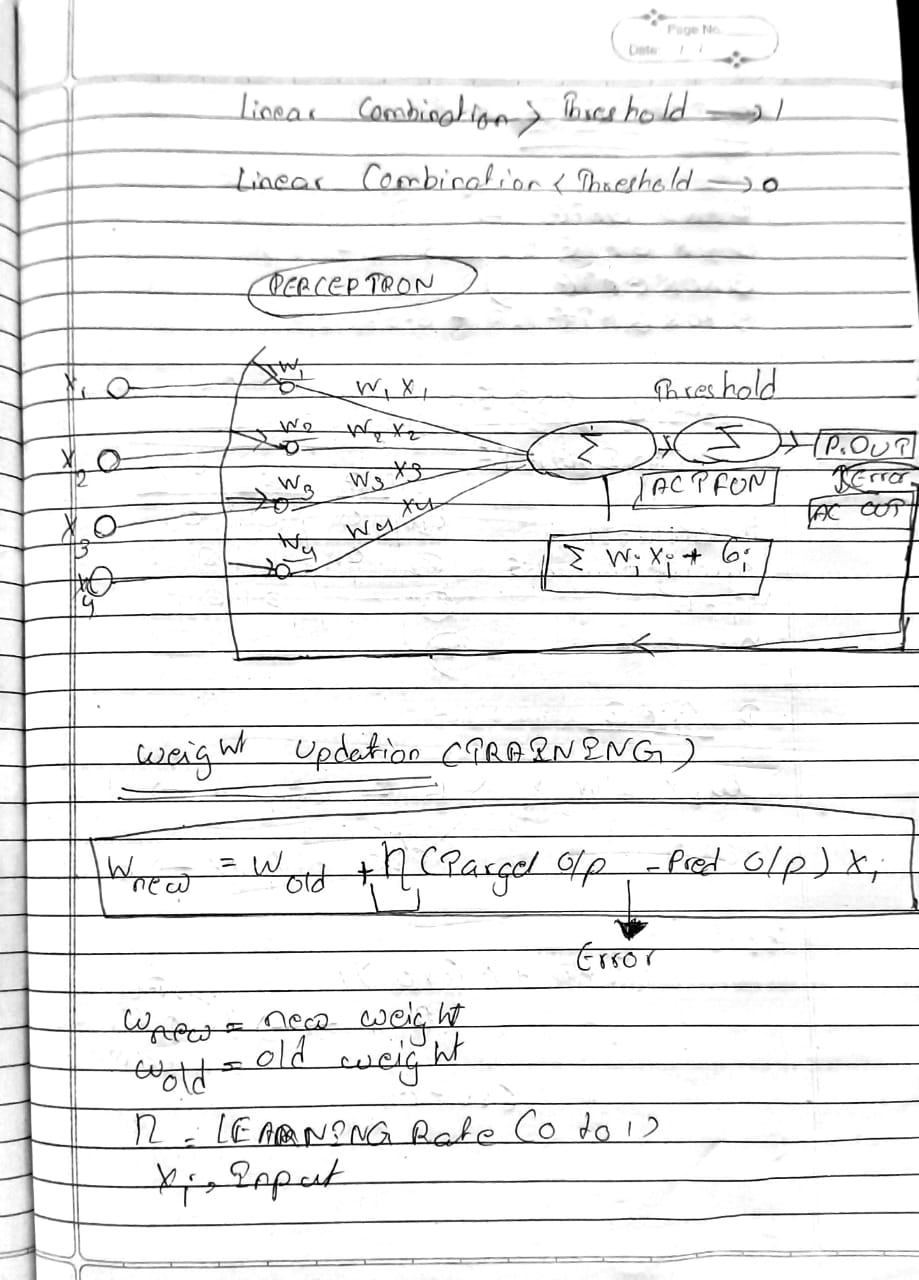 Page No.
Date: / /
Linear Combination > Threshold → 1
Linear Combination < Threshold → 0
PERCEPTRON
x1 w1 w1 x1 Threshold
x2 w2 w2 x2 Σ P.OUT
x3 w3 w3 x3 ACT FUN Error
x4 w4 w4 x4 AC OUT
Σ wi xi + bi
weight Updation (TRAINING)
Wnew = Wold + η (Target O/p - Pred O/p) xi
Error
Wnew = new weight
Wold = old weight
η = LEARNING Rate (0 to 1)
xi = Input